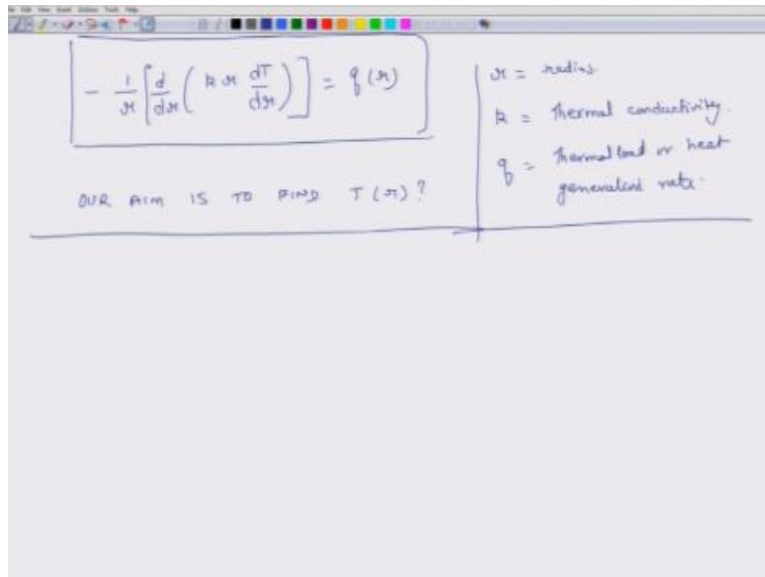 - 1/r [ d/dr ( k r dT/dr ) ] = q (r)
OUR AIM IS TO FIND T (r) ?
r = radius
k = Thermal conductivity.
q = Thermal load or heat
rate.